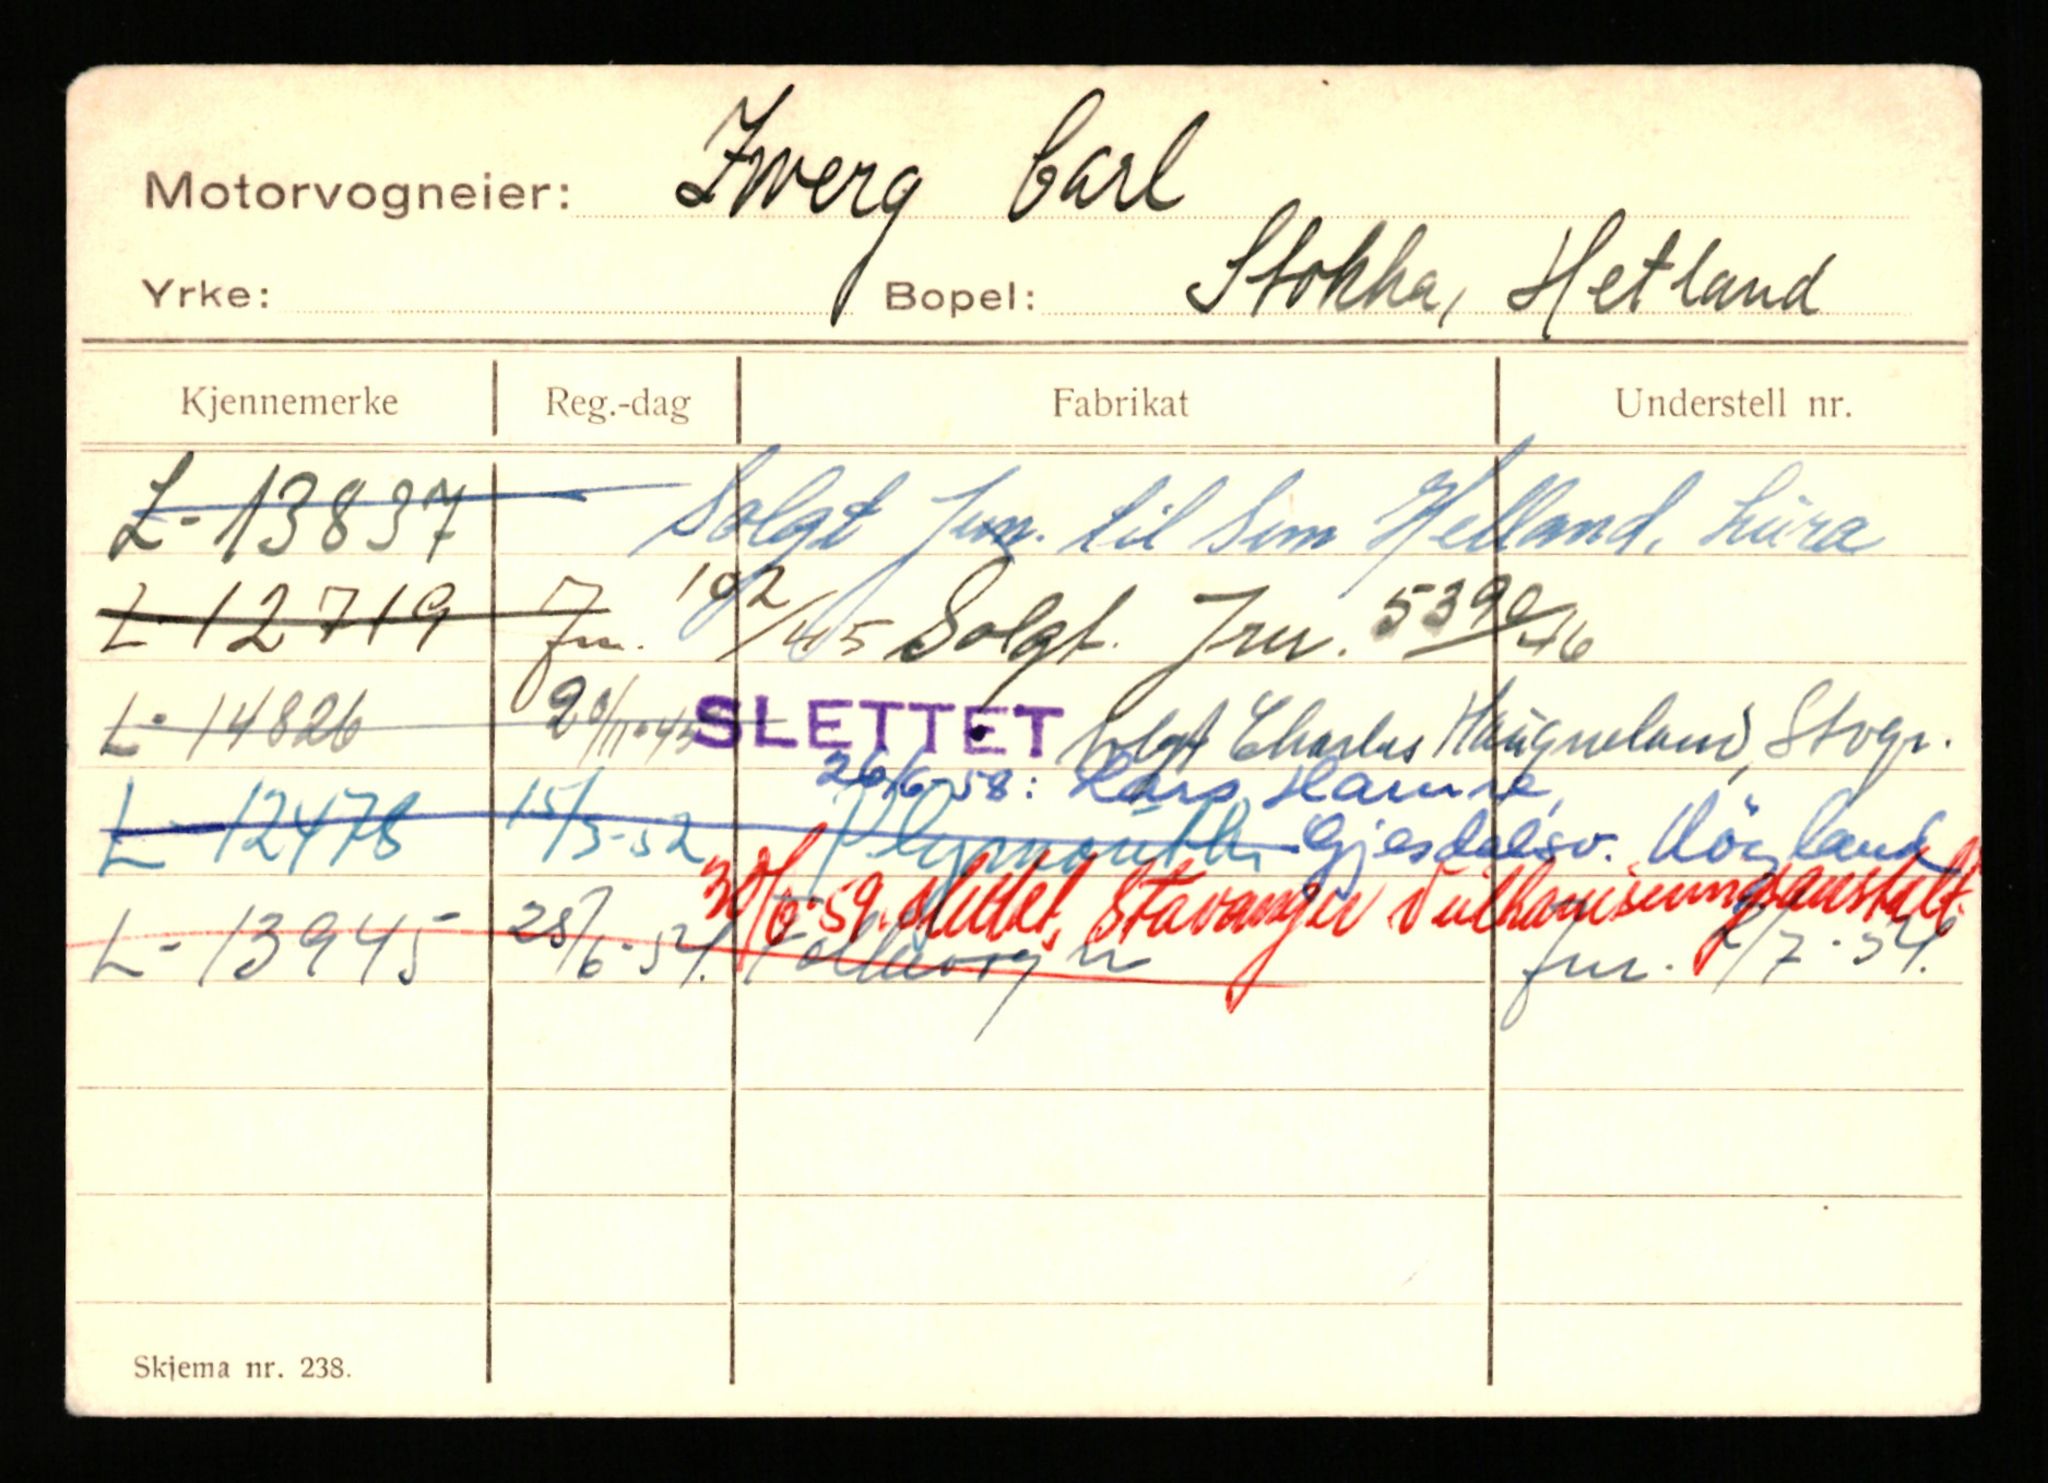 Motorvogneier: Zwerg Carl
Yrke: Bopel: Stokka, Hetland
Kjennemerke Reg.-dag Fabrikat Understell nr.
L-13837 Solgt Jun. til Sem Helland, Lura
L-12719 Jnr. 102/45 Solgt. Jnr. 5390/46
L-14826 20/11-45 SLETTET Solgt Charles Haugneland, Stvgr.
26/6-58: Lars Hamre,
L-12478 15/3-52 Plymouth Gjesdalsv. Höyland
30/6-59. slettet, Stavanger Vulkaniseringsanstalt.
L-13945 28/6-54. Jnr. 2/7-54.
Skjema nr. 238.